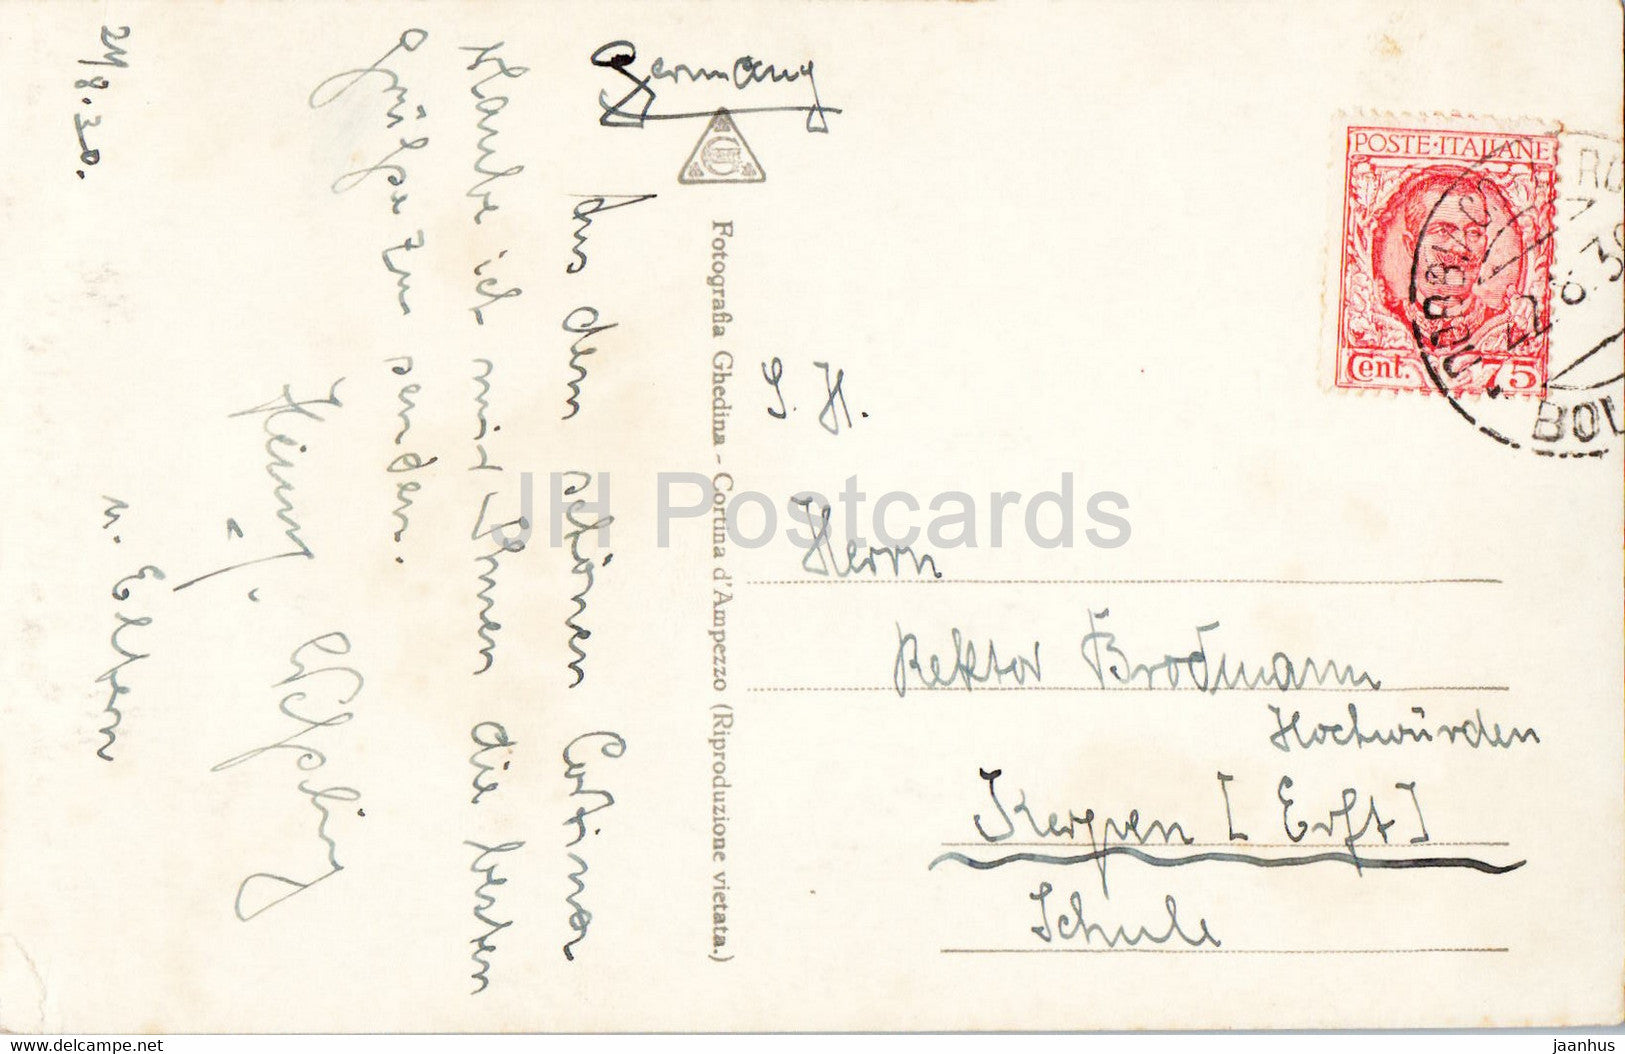 Germany
Aus dem schönen Cortina
erlaube ich mir Ihnen die besten
Grüße zu senden.
Heinz
u. Eltern
21/8.30.
Fotografia Ghedina - Cortina d'Ampezzo (Riproduzione vietata.)
POSTE·ITALIANE
Cent. 75
BOL
S. H.
Herrn
Rektor Brodmann
Hochwürden
Kerpen [Erft]
Schule
JH Postcards
delcampe.net
jaanhus